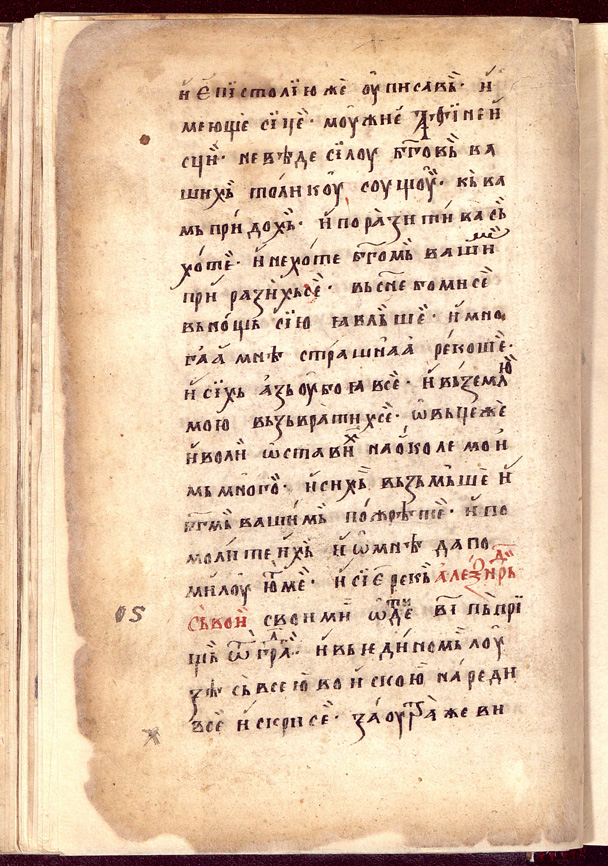 и҆ є҆пїстолїю же ѹ҆писавь· и҆
меюще сїце· моужие а҆ѳїней
сци· не вѣде сїлоу бг҃овь ва
шихь толикоу соущоу· кь ва
мь прїидохь· и҆ поразити вась
хо́те· и҆ не хо́те бг҃омь вашиⷨ
при разихьсе· вь сне бо ми се
вь нощь сїю ꙗвльше· и҆ мно
гаа мнѣ страшнаа рекоше·
и҆ сїхь азь оубоꙗвсе· и҆ вь землю
мою вьзьвратихсе· ѡ҆вьце же
и҆ воли ѡ҆ставиⷯ на о҆коле мои
мь много· и҆ сихь вьзьмьше и҆
бг҃мь вашимь пожрѣте· и҆ по
молите и҆хь и҆ ѡ҆ мнѣ да по
милоую҆ть ме· и҆ сї є҆ рекь алезⷩ҇дрь
сь вои своими ѿиде
ще ѿ граⷣ· и҆ вь єдиномь лоу
зѣ сь всею воискою нареди
все и҆ скри се· заоутра же ви
05